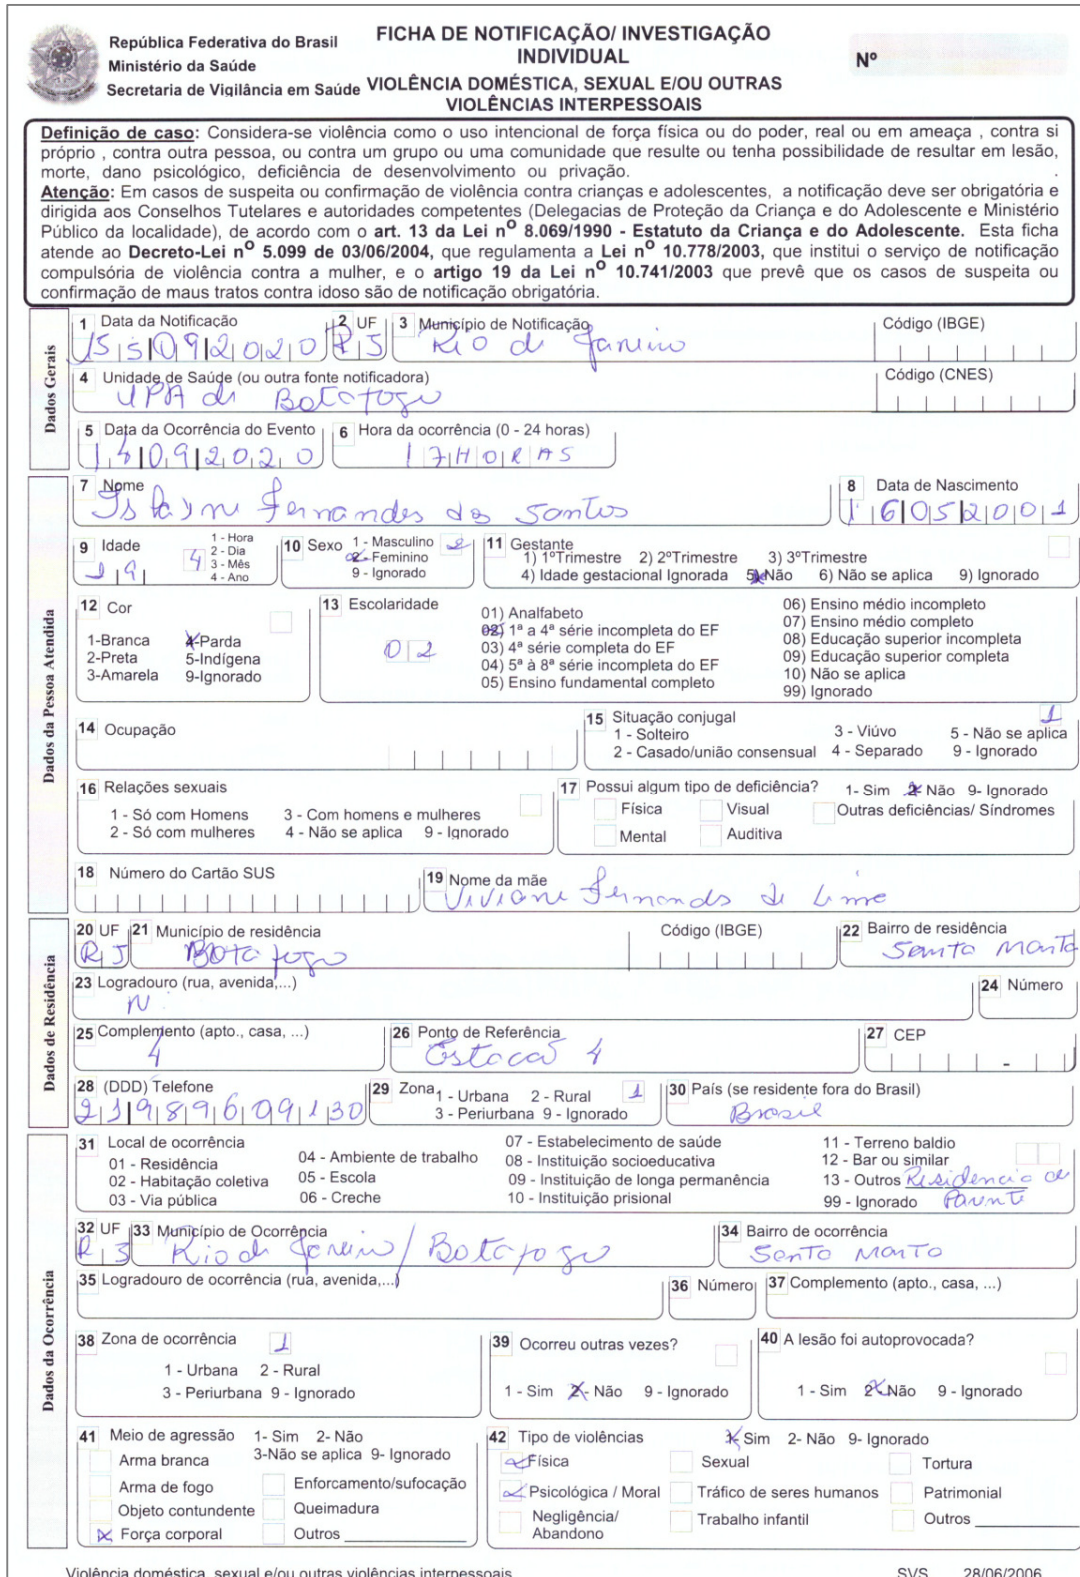 República Federativa do Brasil
Ministério da Saúde
Secretaria de Vigilância em Saúde
FICHA DE NOTIFICAÇÃO/ INVESTIGAÇÃO
INDIVIDUAL
VIOLÊNCIA DOMÉSTICA, SEXUAL E/OU OUTRAS
VIOLÊNCIAS INTERPESSOAIS
Nº
Definição de caso: Considera-se violência como o uso intencional de força física ou do poder, real ou em ameaça , contra si
próprio , contra outra pessoa, ou contra um grupo ou uma comunidade que resulte ou tenha possibilidade de resultar em lesão,
morte, dano psicológico, deficiência de desenvolvimento ou privação.
Atenção: Em casos de suspeita ou confirmação de violência contra crianças e adolescentes, a notificação deve ser obrigatória e
dirigida aos Conselhos Tutelares e autoridades competentes (Delegacias de Proteção da Criança e do Adolescente e Ministério
Público da localidade), de acordo com o art. 13 da Lei nº 8.069/1990 - Estatuto da Criança e do Adolescente. Esta ficha
atende ao Decreto-Lei nº 5.099 de 03/06/2004, que regulamenta a Lei nº 10.778/2003, que institui o serviço de notificação
compulsória de violência contra a mulher, e o artigo 19 da Lei nº 10.741/2003 que prevê que os casos de suspeita ou
confirmação de maus tratos contra idoso são de notificação obrigatória.
Dados Gerais
1 Data da Notificação 2 UF 3 Município de Notificação Código (IBGE)
15 09 2020 RJ Rio de Janeiro
4 Unidade de Saúde (ou outra fonte notificadora) Código (CNES)
UPA de Botafogo
5 Data da Ocorrência do Evento 6 Hora da ocorrência (0 - 24 horas)
14 09 2020 17 HORAS
Dados da Pessoa Atendida
7 Nome 8 Data de Nascimento
Fernandes dos Santos 16 05 2001
9 Idade 19 4 1 - Hora 2 - Dia 3 - Mês 4 - Ano
10 Sexo 1 - Masculino 2 - Feminino 9 - Ignorado 2
11 Gestante
1) 1ºTrimestre 2) 2ºTrimestre 3) 3ºTrimestre
4) Idade gestacional Ignorada 5) Não 6) Não se aplica 9) Ignorado
12 Cor
1-Branca 4-Parda
2-Preta 5-Indígena
3-Amarela 9-Ignorado
13 Escolaridade
02
01) Analfabeto
02) 1ª a 4ª série incompleta do EF
03) 4ª série completa do EF
04) 5ª à 8ª série incompleta do EF
05) Ensino fundamental completo
06) Ensino médio incompleto
07) Ensino médio completo
08) Educação superior incompleta
09) Educação superior completa
10) Não se aplica
99) Ignorado
14 Ocupação
15 Situação conjugal 1
1 - Solteiro 3 - Viúvo 5 - Não se aplica
2 - Casado/união consensual 4 - Separado 9 - Ignorado
16 Relações sexuais
1 - Só com Homens 3 - Com homens e mulheres
2 - Só com mulheres 4 - Não se aplica 9 - Ignorado
17 Possui algum tipo de deficiência? 1- Sim 2- Não 9- Ignorado
Física Visual Outras deficiências/ Síndromes
Mental Auditiva
18 Número do Cartão SUS
19 Nome da mãe
Viviane Fernandes de Lima
Dados de Residência
20 UF 21 Município de residência Código (IBGE) 22 Bairro de residência
RJ Botafogo Santa Marta
23 Logradouro (rua, avenida,...) 24 Número
N
25 Complemento (apto., casa, ...) 26 Ponto de Referência 27 CEP
4 Estacaõ 4
28 (DDD) Telefone 29 Zona 1 - Urbana 2 - Rural 1 30 País (se residente fora do Brasil)
3 - Periurbana 9 - Ignorado
21989609130 Brasil
Dados da Ocorrência
31 Local de ocorrência
01 - Residência
02 - Habitação coletiva
03 - Via pública
04 - Ambiente de trabalho
05 - Escola
06 - Creche
07 - Estabelecimento de saúde
08 - Instituição socioeducativa
09 - Instituição de longa permanência
10 - Instituição prisional
11 - Terreno baldio
12 - Bar ou similar
13 - Outros Residencia de
99 - Ignorado Parente
32 UF 33 Município de Ocorrência 34 Bairro de ocorrência
RJ Rio de Janeiro / Botafogo Santo Marto
35 Logradouro de ocorrência (rua, avenida,...) 36 Número 37 Complemento (apto., casa, ...)
38 Zona de ocorrência 1
1 - Urbana 2 - Rural
3 - Periurbana 9 - Ignorado
39 Ocorreu outras vezes?
1 - Sim 2 - Não 9 - Ignorado
40 A lesão foi autoprovocada?
1 - Sim 2 - Não 9 - Ignorado
41 Meio de agressão 1- Sim 2- Não
3-Não se aplica 9- Ignorado
Arma branca
Arma de fogo Enforcamento/sufocação
Objeto contundente Queimadura
Força corporal Outros
42 Tipo de violências 1- Sim 2- Não 9- Ignorado
Física Sexual Tortura
Psicológica / Moral Tráfico de seres humanos Patrimonial
Negligência/ Abandono Trabalho infantil Outros
Violência doméstica, sexual e/ou outras violências interpessoais SVS 28/06/2006